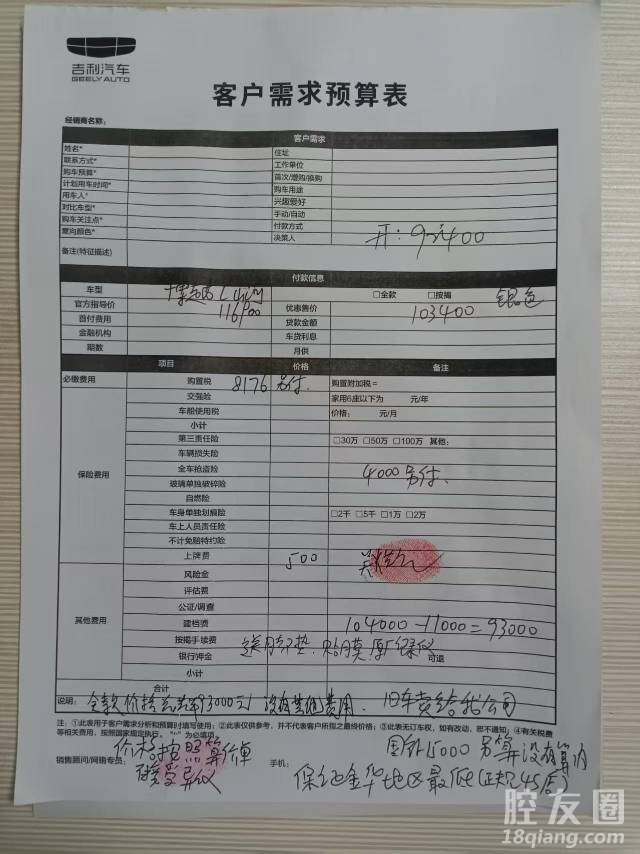 吉利汽车
GEELY AUTO
客户需求预算表
经销商名称:
客户需求
姓名* 住址
联系方式* 工作单位
购车预算* 首次/增购/换购
计划用车时间* 购车用途
用车人* 兴趣爱好
对比车型* 手动/自动
购车关注点* 付款方式
意向颜色* 决策人
开:92400
备注(特征描述)
付款信息
车型 博越L □全款 □按揭 银色
官方指导价 116900 优惠售价 103400
首付费用 贷款金额
金融机构 车贷利息
期数 月供
项目 价格 备注
必缴费用 购置税 8176 另付. 购置附加税=
保险费用
交强险 家用6座以下为 元/年
车船使用税 价格: 元/月
小计
第三责任险 □30万 □50万 □100万 其他:
车辆损失险
全车抢盗险 4000另付.
玻璃单独破碎险
自燃险
车身单独划痕险 □2千 □5千 □1万 □2万
车上人员责任险
不计免赔特约险
上牌费 500
其他费用
风险金
评估费
公证/调查
建档费 104000-11000=93000
按揭手续费 送脚垫.贴膜.原厂记录仪
银行押金 可退
小计
合计
说明: 全款价格 93000元 没有其他费用. 旧车卖给我公司
注:①此表用于客户需求分析和预算时填写使用;②此表仅供参考,并不代表客户所能之最终价格;③此表无订车权,如有改动,恕不通知;④有关税费
等相关费用,按照国家规定执行。"*"为必填项。
价格按照算价单 国补15000另算没有算内
销售顾问/网销专员: 手机:
接受异议 保证金华地区最低(正规4S店)
腔友圈
18qiang.com